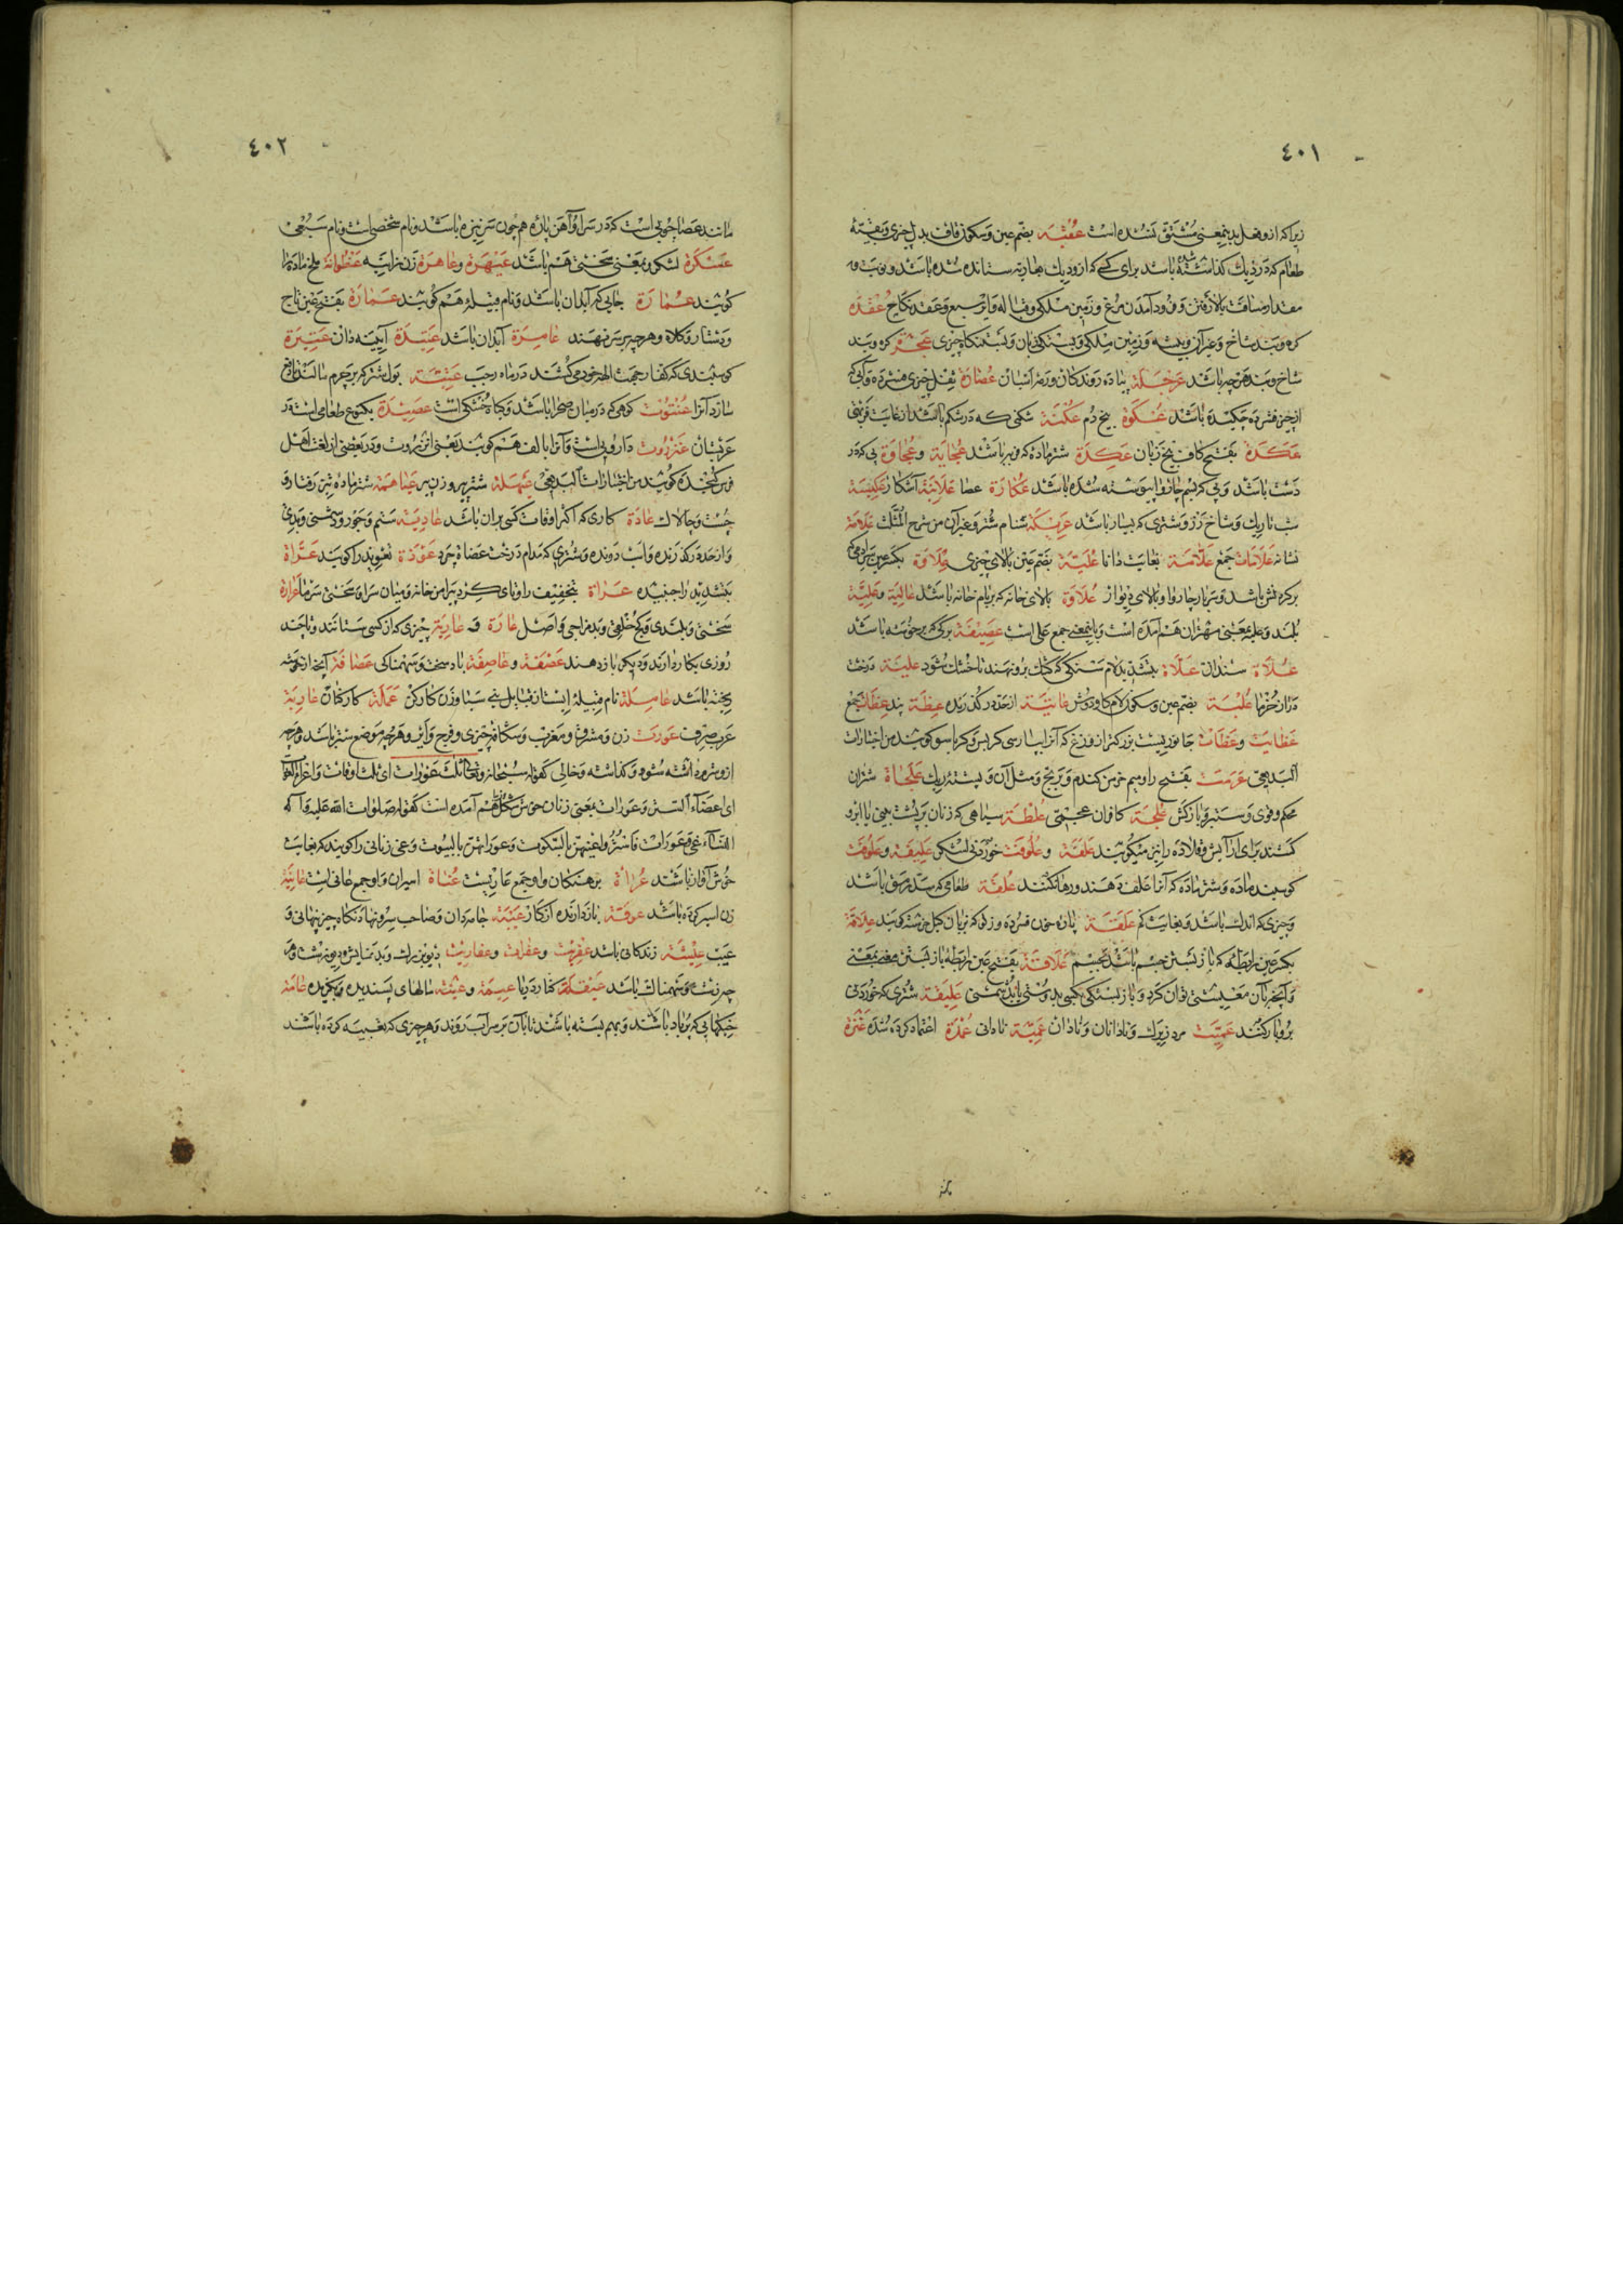 ٤٠١
زیراکه ازو فعل بدینمعنی مشتق نشده است عُقْبَة بضم عین وسکون قاف بدل چیزی وبقیّهٔ
طعام که در دیك گذاشته باشد برای کسی که از ودیك بعاریت ستانده شده باشد ونوبت و
مقدار مسافت بالا رفتن وفرود آمدن مرغ وزمین ملکی وقباله وبیع وعقد نکاح عُقْدَة
کره وبند شاخ وغیر آن وبیشه وزمین ملکی وبستگی زبان وبستنگاه چیزی عُجْرَة کره وبند
شاخ وبند هرچه باشد عَرْجَلَة پیاده روندکان ورمهٔ اسبان عُصَارَة ثفل چیزی فشرده وآبی که
ازچیز فشرده چکیده باشد عُكْوَة بیخ دم عُكْنَة شکنی که در شکم باشد از غایت فربهی
عَكَدَة بفتح کاف بیخ زبان عَكِدَة شتر ماده که فربه باشد عُجَايَة وعُجَاوَة پی که در
دست باشد وپی که بسم چاروا پیوسته شده باشد عُكَّازَة عصا عَلَانِيَة آشکارا عَكِيسَة
شب تاریك وشاخ رز وشتری که بسیار باشد عَرِيكَة سنام شتر وغیر آن من شرح المثلث عَلَامَة
نشانه عَلَامَات جمع عَلَّامَة بغایت دانا عُلِّيَّة بضم عین بالای چیزی عِلَاوَة بکسر عین سر آدمی که
بر گردنش باشد وسربار چاروا وبالای دیوار عُلَاوَة بالای خانه که بربام خانه باشد عَالِيَة وعَلِيَّة
بلند وعلیه بمعنی مهتران هم آمده است وباینمعنی جمع علی است عَصِيفَة برکی که بر خوشه باشد
عَلَاة سندان عَلَّاة بتشدید لام سنکی که کشك برو نهند تا خشك شود عليبة درخت
دراز خرما عُلْبَة بضم عین وسکون لام کاو دوش عَاتِيَة از حد در کذرنده عِظَة پند عِظَات جمع
عَظَايَت وعَظَات جانوریست بزرکتر از وزغ که آنرا بپارسی کربس وکرباسو کویند من اختیارات
البدیعی عَرَمَت بفتح را ومیم خرمن کندم وبرنج ومثل آن وپشتهٔ ریك عَلَجَاة شتران
محکم وقوی وستبر وبارکش عِلْجَة کافران عجمی عُلْطَة سیاهی که زنان بر پشت بینی یا ابرو
کنند برای آرایش وقلاده را نیز میکویند عَلَفَة وعُلُوفَت خوردنی لشکر عَلِيفَة وعَلُوفَت
کوسپند ماده وشتر ماده که آنرا علف دهند ورها نکنند عُلْقَة طعامی که سدّ رمق باشد
وچیزی که اندك باشد وبغایت کم عَلَقَة پارهٔ خون فسرده وزلو که بزبان کیل خرشته کویند عِلَاقَة
بکسر عین رابطه که باز بستن جسم باشد بجسم عَلَاقَة بفتح عین رابطهٔ باز بستن معنی بمعنی
وآنچه بآن معیشتی توان کرد وبازبستگی بکسی بدوستی یا بدشمنی عَلِيقَة شتری که خوردنی
بروبار کنند عَمِّيت مرد زیرك ونادانان ونادان عَمِيَّة نادانی عُمْدَة اعتماد کرده شده عَنَزَة
٤٠٢
مانند عصا چوبی است که در سر او آهن پارهٔ همچون سر نیزه باشد ونام شخصیست ونام سبعی
عَسْكَرَة لشکر وبمعنی سختی هم باشد عَيْهَرَة وعَاهِرَة زن زانیه عُنْظُوانَة ملخ ماده را
کویند عِمَارَة جایی که آبدان باشد ونام قبیله هم کویند عَمَارَة بفتح عین تاج
ودستار وکلاه وهرچه بر سر نهند عَامِرَة آبدان باشد عَتِيدَة آیینه دان عَتِيرَة
کوسپندی که کفار بجهت الههٔ خود می کشند در ماه رجب عَنِيَّة بول شتر که بر چرم مالند تا دفع
سازد آنرا عُنْتُوت کوهی که در میان صحرا باشد وکیاه خشکی است عَصِيدَة یکنوع طعامی است در
عربستان عَنْزَرُوت دارویی است وآنرا بالف هم کویند یعنی انزروت ودر بعضی از لغت اهل
فرس کنجده کویند من اختیارات البدیعی عَيْهَلَة شتر پیر وزن پیر عَيَاهِمَة شتر ماده تیز رفتار و
چست وچالاك عَادَة کاری که اکثر اوقات کسی بران باشد عَادِيَة ستم وجور ودشمنی وبدی
واز حد در کذرنده واسب دونده وشتری که مدام درخت عضاه چرد عَوْذَة تعویذ را کویند عَرَّاة
بتشدید را جنبیده عَرَاة بتخفیف را وتای کرد پیرامن خانه ومیان سرا وسختی سرما عَرَارَة
سختی وبلندی وکج خلقی وبدمزاجی واصل عَارَة و عَارِيَة چیزی که از کسی ستانند وتا چند
روزی بکار دارند ودیکر باز دهند عَصْفَة وعَاصِفَة باد سخت وسهمناکی عُصَافَة آنچه از خوشه
ریخته باشد عَامِلَة نام قبیله ایست از قبایل بنی سبا وزن کارکن عَمَلَة کارکنان عَارِبَة
عرب صرف عَورَت زن ومشرق ومغرب وشکاف چیزی وفرج وایر وهرچه موضع ستر باشد وهرچه
ازو شرم داشته شود وکذاشته وخالی کقوله سبحانه وتعالی ثلث عَوْرات ای ثلث اوقات واعرام العوا
ای اعضاء الستر وعورات بمعنی زنان خوش شکل هم آمده است کقوله صلوات الله علیه وآله
النساء عی وعورات فاستروا عیهن بالسکوت وعوراتهن بالبیوت وعی زنانی را کویند که بغایت
خوش آواز باشند عُرَاة برهنکان واو جمع عاریست عُنَاة اسیران واو جمع عانی است عَانِيَة
زن اسیر کرده باشد عَوَّقَة باز دارنده از کار عَيْبَة جامه دان وصاحب سر ونهادنکاه چیز پنهانی و
عیب عِيْشَة زندکانی باشد عِفْرِيت وعفرات وعَفَارِيت دیو بزرك وبد نمایش ودیو زشت وهر
چیز زشت وسهمناك باشد عَيْقَلَة کفتار دریا عِيمَة وعَيْمَة مالهای پسندیده وبکزیده عَامَة
خیکهایی که پر باد باشند وبهم بسته باشند تا بآن بر سر آب روند وهر چیزی که تعبیه کرده باشند